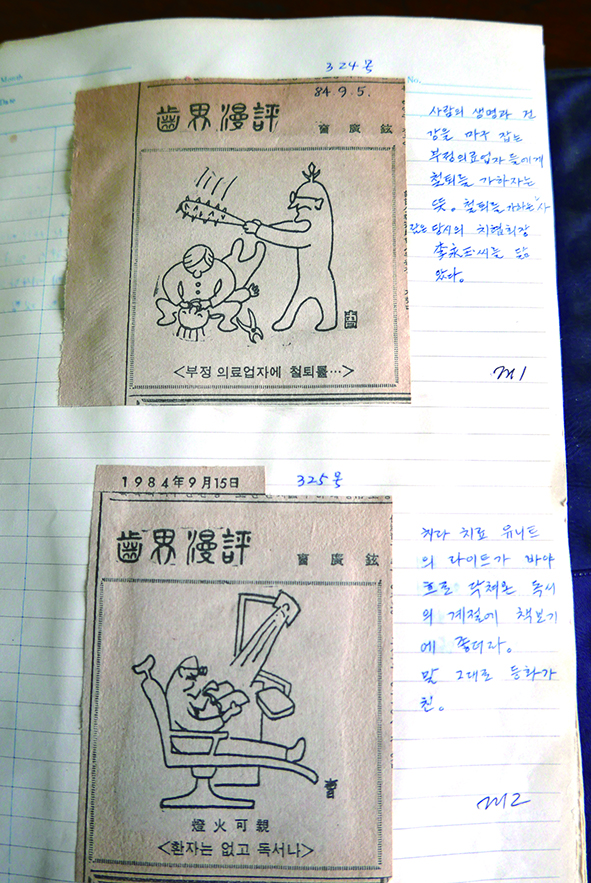 Month
Date
No.
324号
84 9. 5.
齒界漫評
鉉
사람의 생명과 건
강을 마구 잡는
부정의료업자들에게
철퇴를 가하자는
뜻. 철퇴를 가하는 사
람은 당시의 치협회장
李永玉씨를 닮
았다.
<부정 의료업자에 철퇴를…>
M1
1984年9月15日
325号
齒界漫評
鉉
치료 유니트
의 라이트가 바야
흐로 닥쳐온 독서
의 계절에 책보기
에 좋더라.
말 그대로 등화가
친.
燈火可親
<환자는 없고 독서나>
M2